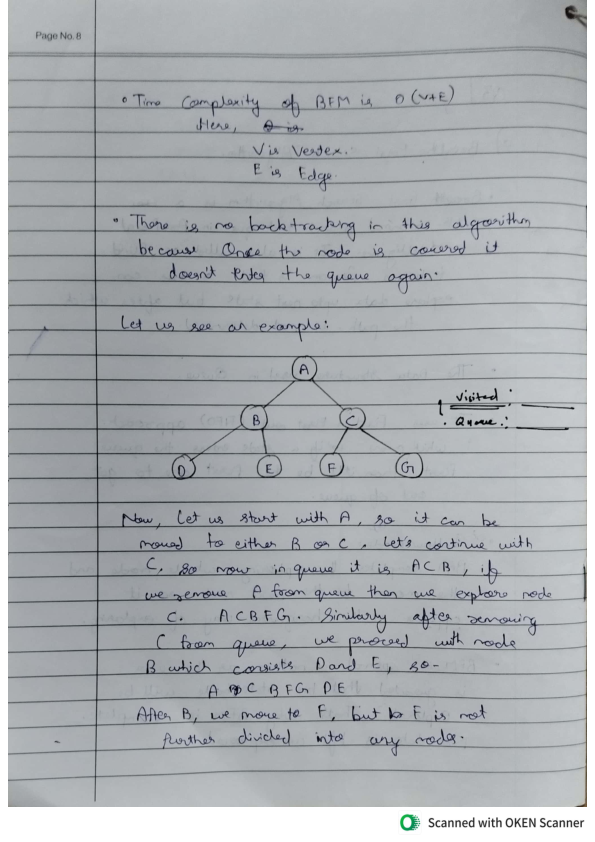 Page No. 8
• Time Complexity of BFM is O(V+E)
Here,
V is Vertex.
E is Edge.
• There is no backtracking in this algorithm
because Once the node is covered it
doesn't Enter the queue again.
Let us see an example:
A
Visited:
Queue:
B
C
D
E
F
G
Now, Let us start with A, so it can be
moved to either B or C. Let's continue with
C. so now in queue it is ACB, if
we remove A from queue then we explore node
C. ACBFG. Similarly after removing
C from queue, we proceed with node
B which consists D and E, so-
A C B F G D E
After B, we move to F, but F is not
further divided into any nodes.
Scanned with OKEN Scanner